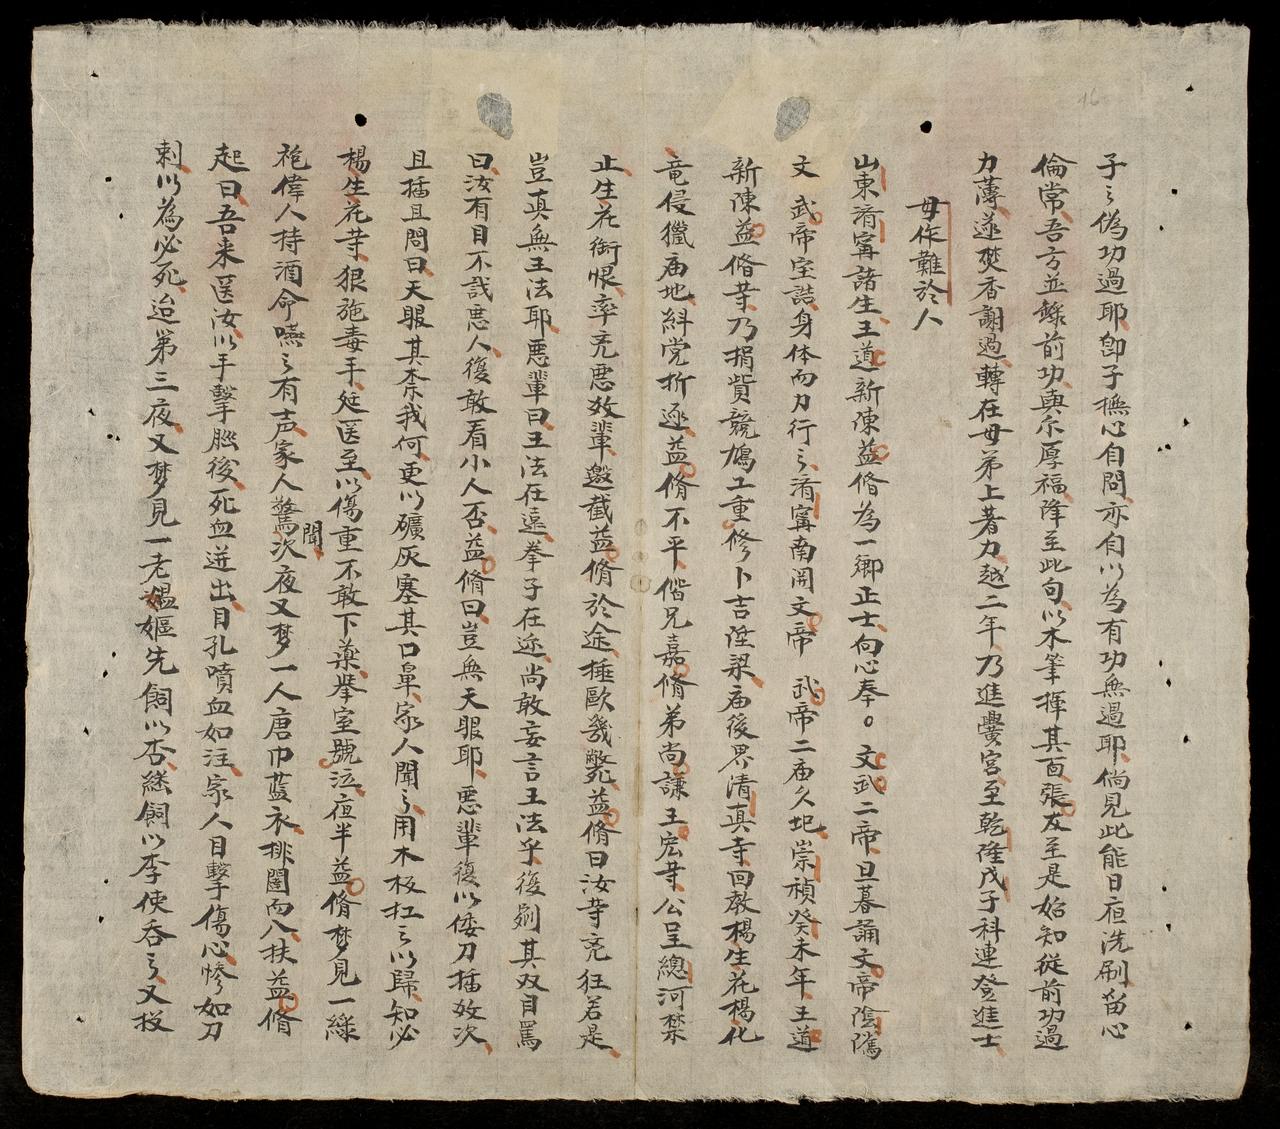 16
子〻偽功過耶卽子撫心自問亦自以為有功無過耶倘見此能日夜洗刷畄心
倫常吾方並錄前功與尔厚福降至此句以木筆揮其面張友至是始知從前功過
力薄遂焚香謝過轉在母弟上著力越二年乃進黌宮至乾隆戊子科連登進士
毋作難於人
山東濟寧諸生王道新陳益脩為一鄉正士向心奉。文武二帝旦暮誦文帝陰隲
文 武帝宝誥身体而力行〻濟寧南関文帝 武帝二庙久圯崇禎癸未年王道
新陳益脩䓁乃捐貲競鳩工重修卜吉陞梁庙後界清真寺回教楊生花楊化
竜侵獵庙地糾党折逐益脩不平偕兄嘉脩弟尚謙王宏䓁公呈總河禁
止生花銜恨率兇惡数輩邀截益脩於途捶歐幾斃益脩曰汝䓁兇狂若是
豈真無王法耶惡輩曰王法在遠拳子在迩尚敢妄言王法乎復剜其双目罵
曰汝有目不識惡人復敢看小人否益脩曰豈無天眼耶惡輩復以倭刀插数次
且插且問曰天眼其柰我何更以礦灰塞其口鼻家人聞〻用木板扛〻以歸知必
楊生花䓁狠施毒手延医至以傷重不敢下藥挙室號泣夜半益脩梦見一緑
袍偉人持酒命嚥〻有声家人驚聞次夜又梦一人唐巾藍衣排闥而入扶益脩
起曰吾来医汝以手擊脳後死血迸出目孔噴血如注家人目擊傷心惨如刀
刺以為必死迨第三夜又梦見一老媼嫗先飼以杏継飼以李使吞〻又投